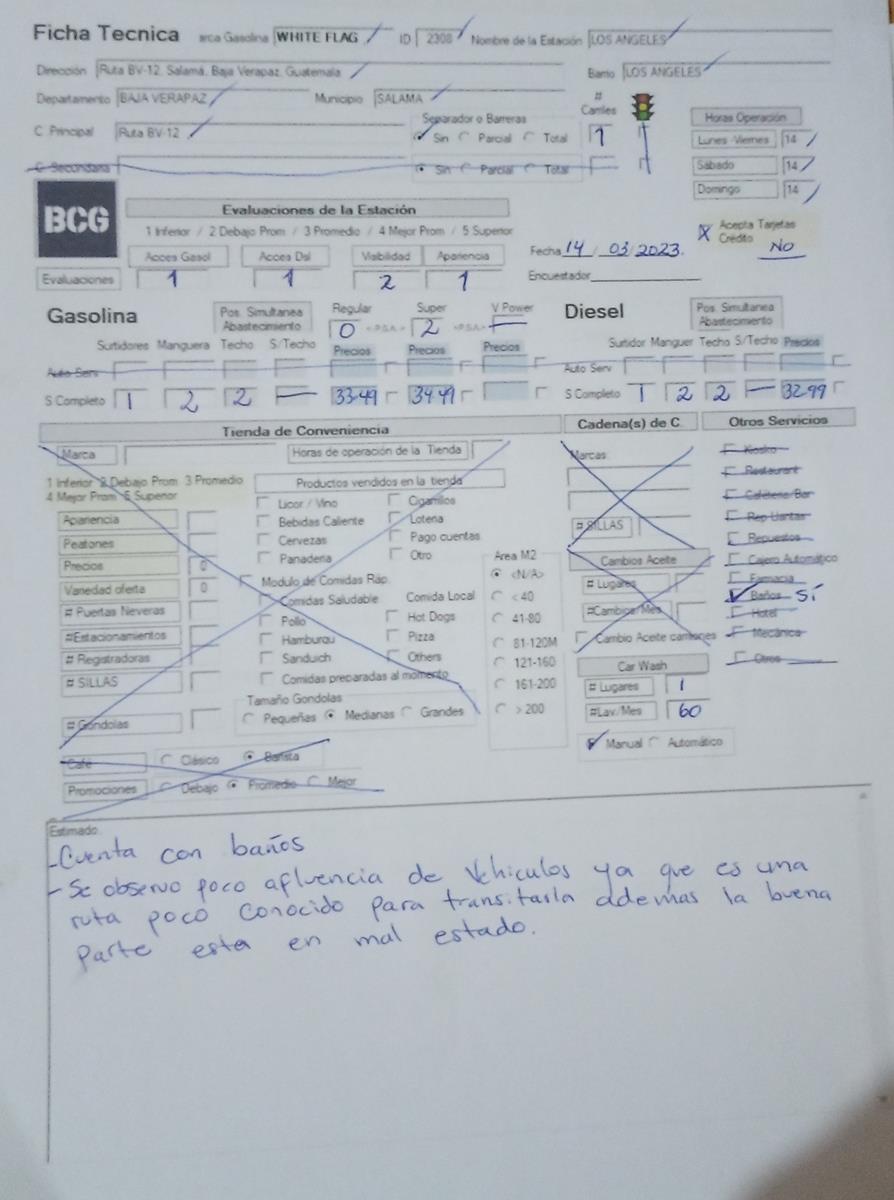 Ficha Tecnica arca Gasolina WHITE FLAG ID 2308 Nombre de la Estación LOS ANGELES
Dirección Ruta BV-12, Salamá, Baja Verapaz, Guatemala Barrio LOS ANGELES
Departamento BAJA VERAPAZ Municipio SALAMA # Carriles
C Principal Ruta BV-12 Separador o Barreras Sin Parcial Total 1
C Secundaria Sin Parcial Total
Horas Operación
Lunes -Viernes 14
Sábado 14
Domingo 14
BCG
Evaluaciones de la Estación
1 Inferior / 2 Debajo Prom / 3 Promedio / 4 Mejor Prom / 5 Superior
Acces Gasol Acces Dsl Viabilidad Apariencia
Evaluaciones 1 1 2 1
Fecha 14 / 03 / 2023.
Encuestador
X Acepta Tarjetas Crédito NO
Gasolina Pos. Simultanea Abastecimiento Regular Super V Power
0 <P.S.A.> 2 <P.S.A.> —
Surtidores Manguera Techo S/Techo Precios Precios Precios
Auto Serv
S Completo 1 2 2 — 33.49 34.49
Diesel Pos. Simultanea Abastecimiento
Surtidor Manguer Techo S/Techo Precios
Auto Serv
S Completo 1 2 2 — 32.99
Tienda de Conveniencia
Marca Horas de operación de la Tienda
1 Inferior 2 Debajo Prom 3 Promedio
4 Mejor Prom 5 Superior
Apariencia
Peatones
Precios 0
Variedad oferta 0
# Puertas Neveras
#Estacionamientos
# Registradoras
# SILLAS
# Gondolas
Productos vendidos en la tienda
Licor / Vino Cigarrillos
Bebidas Caliente Loteria
Cervezas Pago cuentas
Panaderia Otro
Modulo de Comidas Ráp.
Comidas Saludable Comida Local
Pollo Hot Dogs
Hamburqu Pizza
Sanduich Others
Comidas preparadas al momento
Tamaño Gondolas
Pequeñas Medianas Grandes
Area M2
<N/A>
< 40
41-80
81-120M
121-160
161-200
> 200
Café Clásico Barista
Promociones Debajo Promedio Mejor
Cadena(s) de C.
Marcas:
# SILLAS
Cambios Aceite
# Lugares
#Cambios/Mes
Cambio Aceite camiones
Car Wash
# Lugares 1
#Lav/Mes 60
Manual Automático
Otros Servicios
Kiosko
Restaurant
Cafeteria/Bar
Rep Llantas
Repuestos
Cajero Automático
Farmacia
Baños Sí
Hotel
Mecánica
Otros
Estimado
- Cuenta con baños
- Se observo poco afluencia de Vehiculos ya que es una
ruta poco conocido para transitarla ademas la buena
parte esta en mal estado.